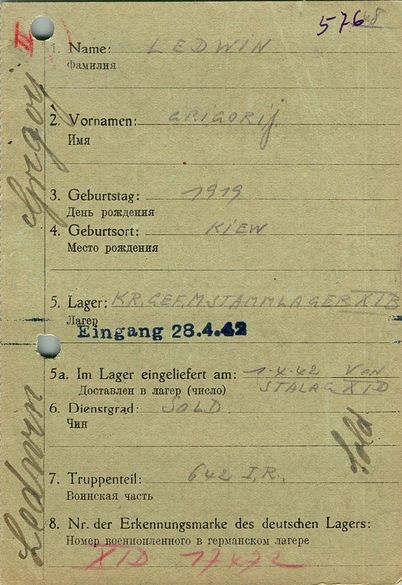 576
II
1. Name: LEDWIN
Фамилия
2. Vornamen: GRIGORIJ
Имя
3. Geburtstag: 1919
День рождения
4. Geburtsort: KIEW
Место рождения
5. Lager: KR.GEF.M.STAMMLAGER XIB
Лагерь
Eingang 28.4.42
5a. Im Lager eingeliefert am: 1.4.42 VON
Доставлен в лагерь (число) STALAG XI D
6. Dienstgrad: SOLD.
Чин
7. Truppenteil: 642 I.R.
Воинская часть
8. Nr. der Erkennungsmarke des deutschen Lagers:
Номер военнопленного в германском лагере
XID 17472
Ledwin Grigorij
Sold